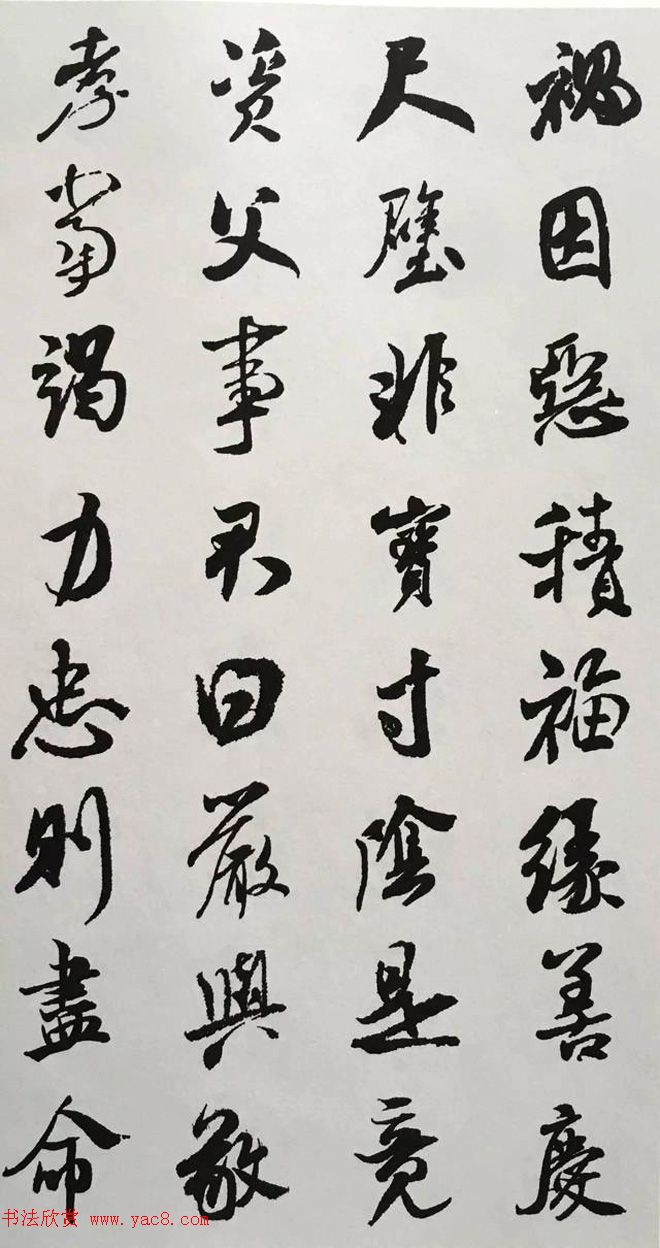 禍因惡積福緣善慶
尺璧非寶寸陰是竞
資父事君曰嚴與敬
孝當竭力忠則盡命
书法欣赏 www.yac8.com